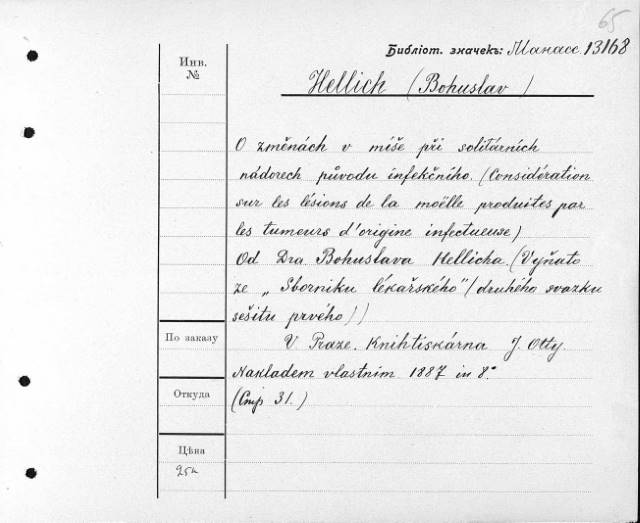 65
Библіот. значекъ: Манасс. 13168
Инв.
№
Hellich (Bohuslav)
O změnách v míše při solitárních
nádorech původu infekčního. (Considération
sur les lésions de la moëlle produites par
les tumeurs d'origine infectueuse)
Od Dra Bohuslava Hellicha. (Vyňato
ze „Sborniku lékařského" (druhého svazku
sešitu prvého))
По заказу
V Praze. Knihtiskárna J. Otty.
Nákladem vlastním 1887 in 8°
Откуда
(Стр 31.)
Цѣна
25к